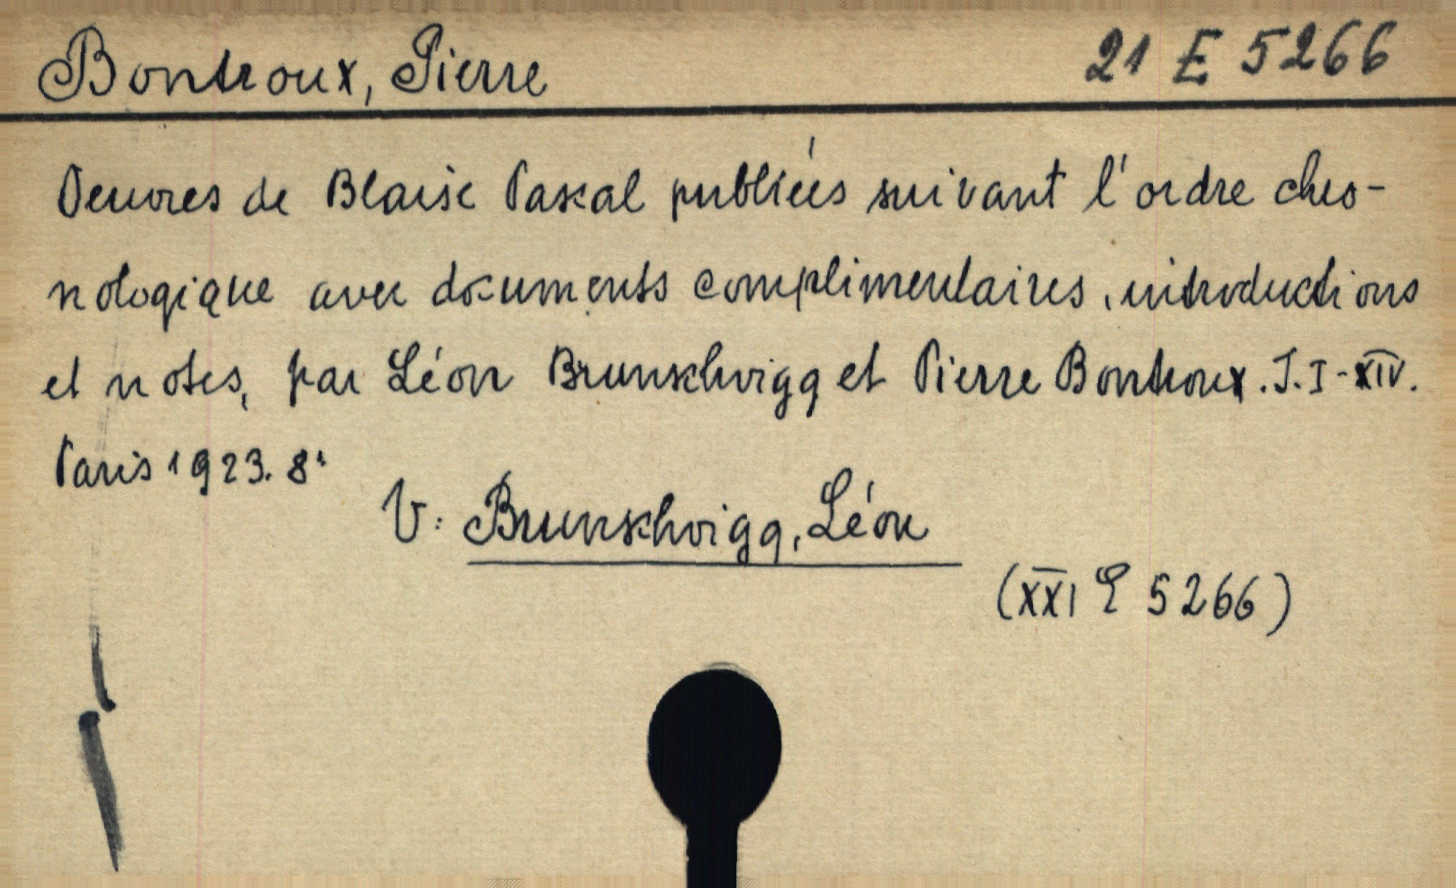 Boutroux, Pierre 21 E 5266
Oeuvres de Blaise Pascal publiées suivant l'ordre chro-
nologique avec documents complimentaires, introductions
et notes, par Léon Brunschvigg et Pierre Boutroux. T. I-XIV.
Paris 1923. 8°
V: Brunschvigg, Léon
(XXI E 5266)